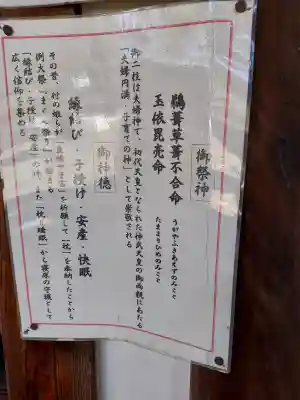 御祭神
鵜葺草葺不合命
うがやふきあえずのみこと
玉依毘売命
たまよりひめのみこと
御二柱は夫婦神で、初代天皇となられた神武天皇の御両親にあたる
「夫婦円満、子育ての神」として崇敬される
御神徳
縁結び・子授け・安産・快眠
その昔、村の娘らが「良縁・子宝」を祈願して「枕」を奉納したことから
例大祭「まくら祭り」が始まる
「縁結び・子授け・安産」のほか、また「枕」「睡眠」から寝床の守護として
広く信仰を集める